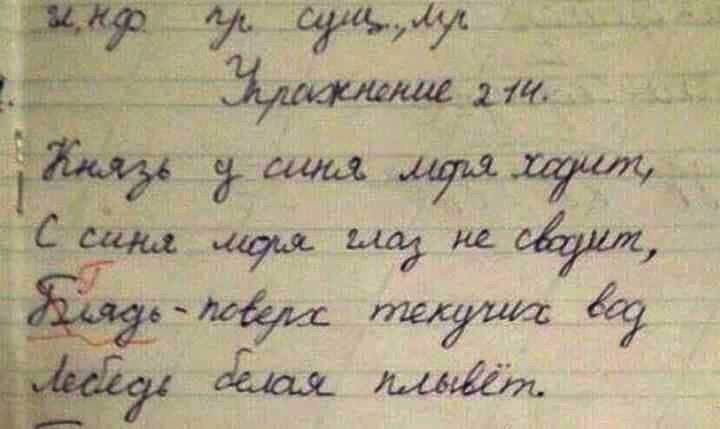 и, нф пр сущ., мр
Упражнение 214.
Князь у синя моря ходит,
С синя моря глаз не сводит,
Г
Блядь - поверх текучих вод
Лебедь белая плывёт.